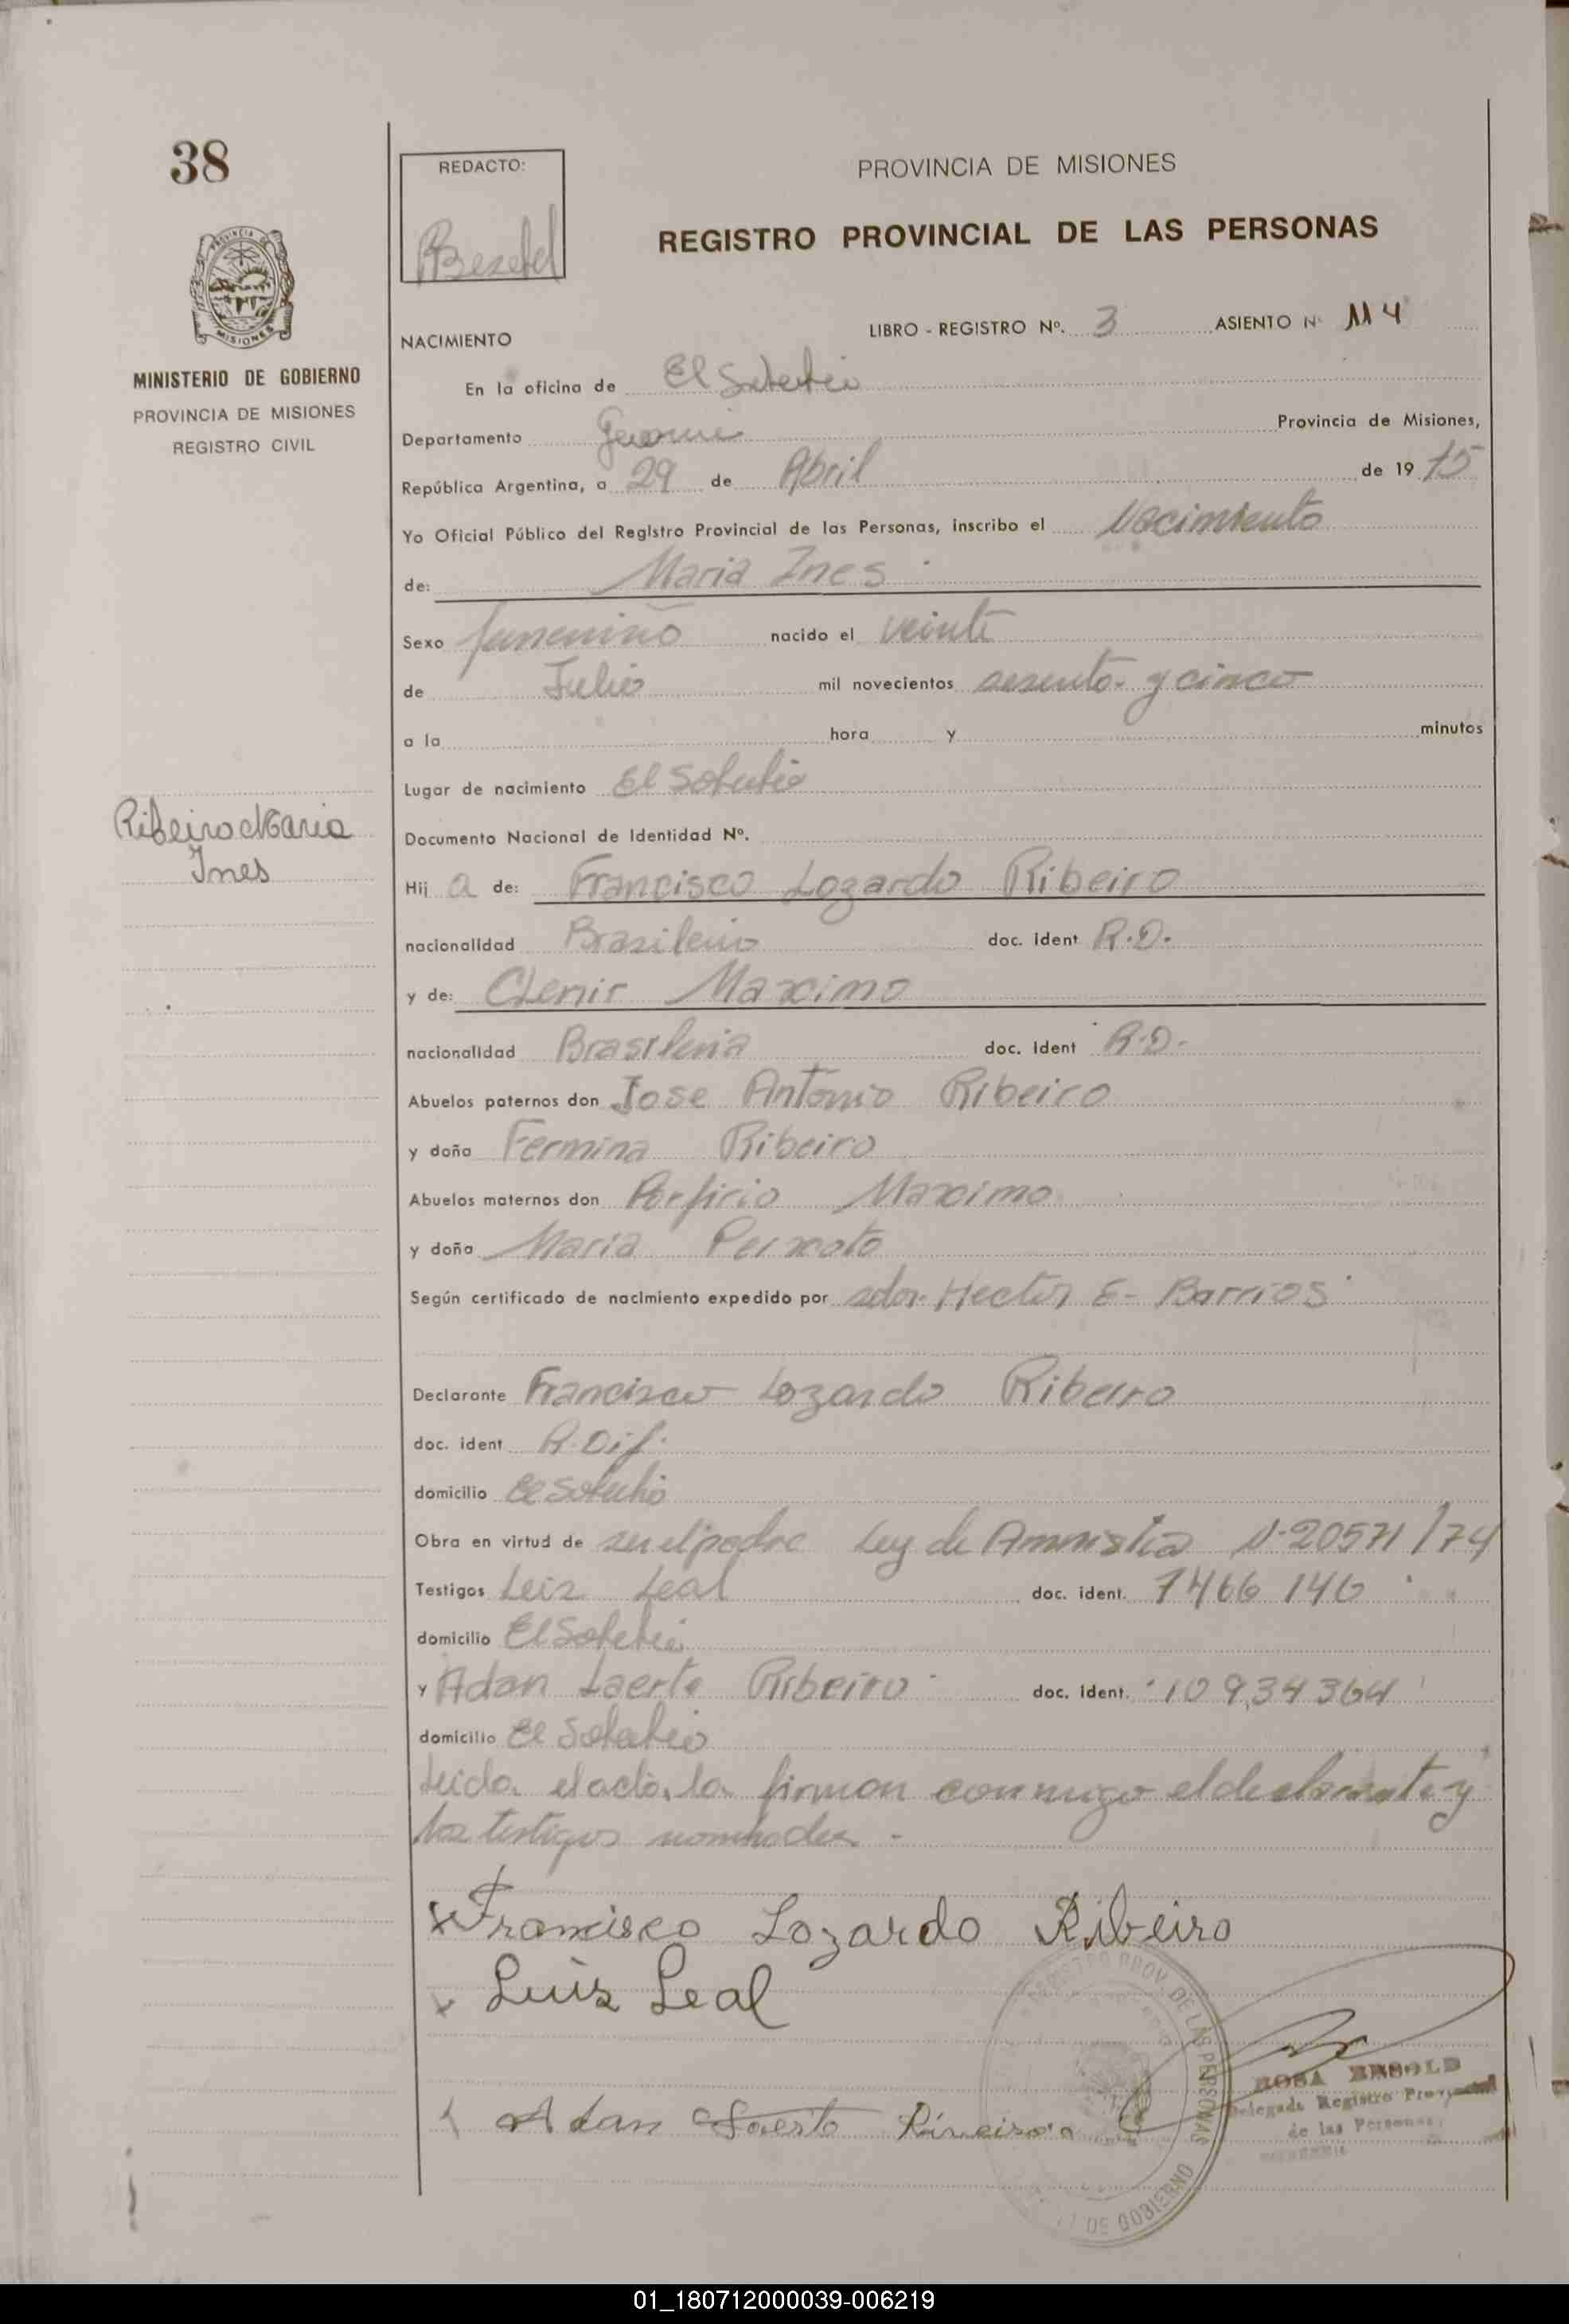 38
REDACTO:
PROVINCIA DE MISIONES
REGISTRO PROVINCIAL DE LAS PERSONAS
PROVINCIA DE
MISIONES
MINISTERIO DE GOBIERNO
PROVINCIA DE MISIONES
REGISTRO CIVIL
NACIMIENTO
LIBRO - REGISTRO Nº. 3 ASIENTO Nº 114
En la oficina de El Soberbio
Departamento Guarani Provincia de Misiones,
República Argentina, a 29 de Abril de 19 75
Yo Oficial Público del Registro Provincial de las Personas, inscribo el Nacimiento
de: Maria Ines
Sexo femenino nacido el veinte
de Julio mil novecientos sesenta y cinco
a la hora y minutos
Lugar de nacimiento El Soberbio
Ribeiro Maria
Ines
Documento Nacional de Identidad Nº.
Hij a de: Francisco Lozardo Ribeiro
nacionalidad Brasilenio doc. ident R.D.
y de: Clenir Maximo
nacionalidad Brasilenia doc. ident R.D.
Abuelos paternos don Jose Antonio Ribeiro
y doña Fermina Ribeiro
Abuelos maternos don Porfirio Maximo
y doña Maria Peixoto
Según certificado de nacimiento expedido por sdor. Hector E- Barrios
Declarante Francisco Lozardo Ribeiro
doc. ident R. Dif.
domicilio El Soberbio
Obra en virtud de ser el padre Ley de Amnistia N-20571/74
Testigos Luiz Leal doc. ident. 7466 146
domicilio El Soberbio
y Adan Laerte Ribeiro doc. ident. 10 934 364
domicilio El Soberbio
Leida el acta, la firman conmigo el declarante y
los testigos nombrados -
Francisco Lozardo Ribeiro
Luiz Leal
Adan Laerte
REGISTRO PROV. DE LAS PERSONAS
DE GOBIERNO
ROSA
Delegada Registro Provincial
de las Personas
01_180712000039-006219